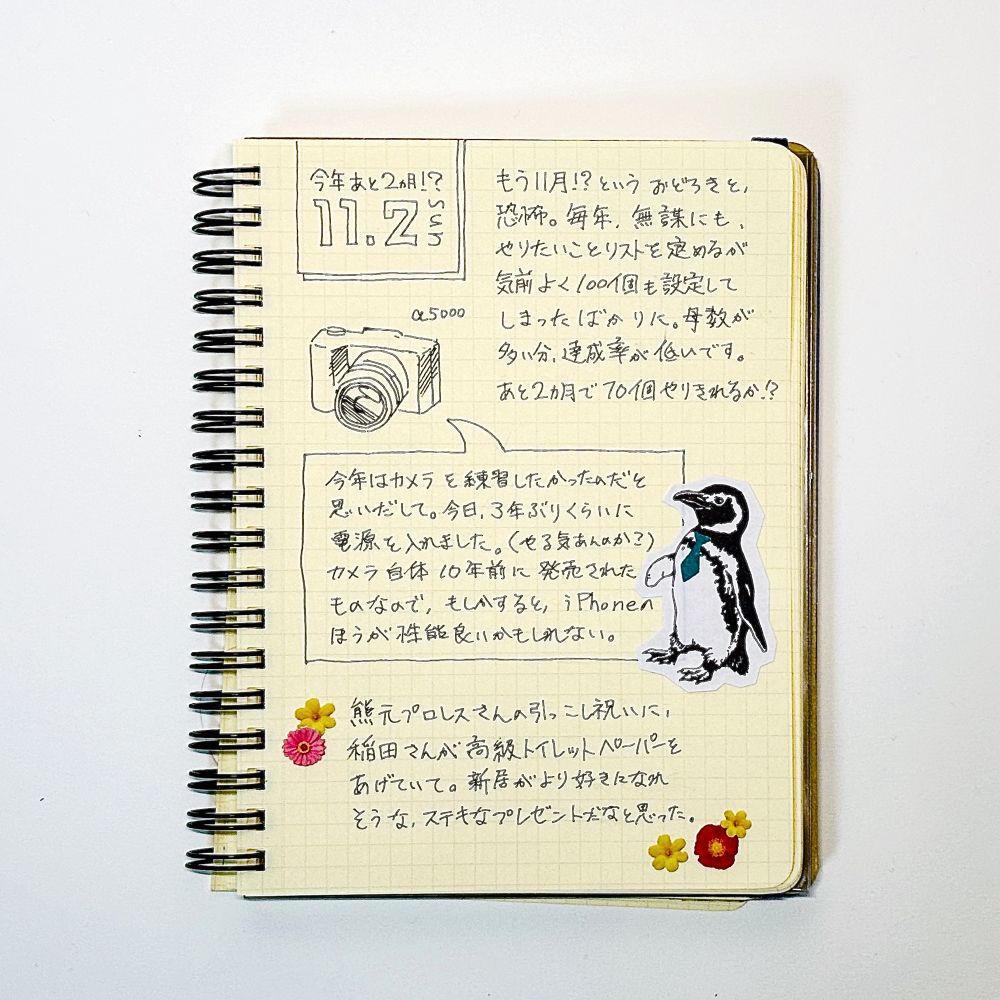 今年あと2ヵ月!?
11.2 Sun
もう11月!?という おどろきと、
恐怖。毎年、無謀にも、
やりたいことリストを定めるが
気前よく100個も設定して
しまったばかりに。母数が
多い分、達成率が低いです。
あと2ヵ月で70個やりきれるか!?
α5000
今年はカメラを練習したかったのだと
思いだして。今日、3年ぶりくらいに
電源を入れました。(やる気あんのか?)
カメラ自体10年前に発売された
ものなので、もしかすると、iPhoneの
ほうが性能良いかもしれない。
熊元プロレスさんの引っこし祝いに、
稲田さんが高級トイレットペーパーを
あげていて。新居がより好きになれ
そうな、ステキなプレゼントだなと思った。